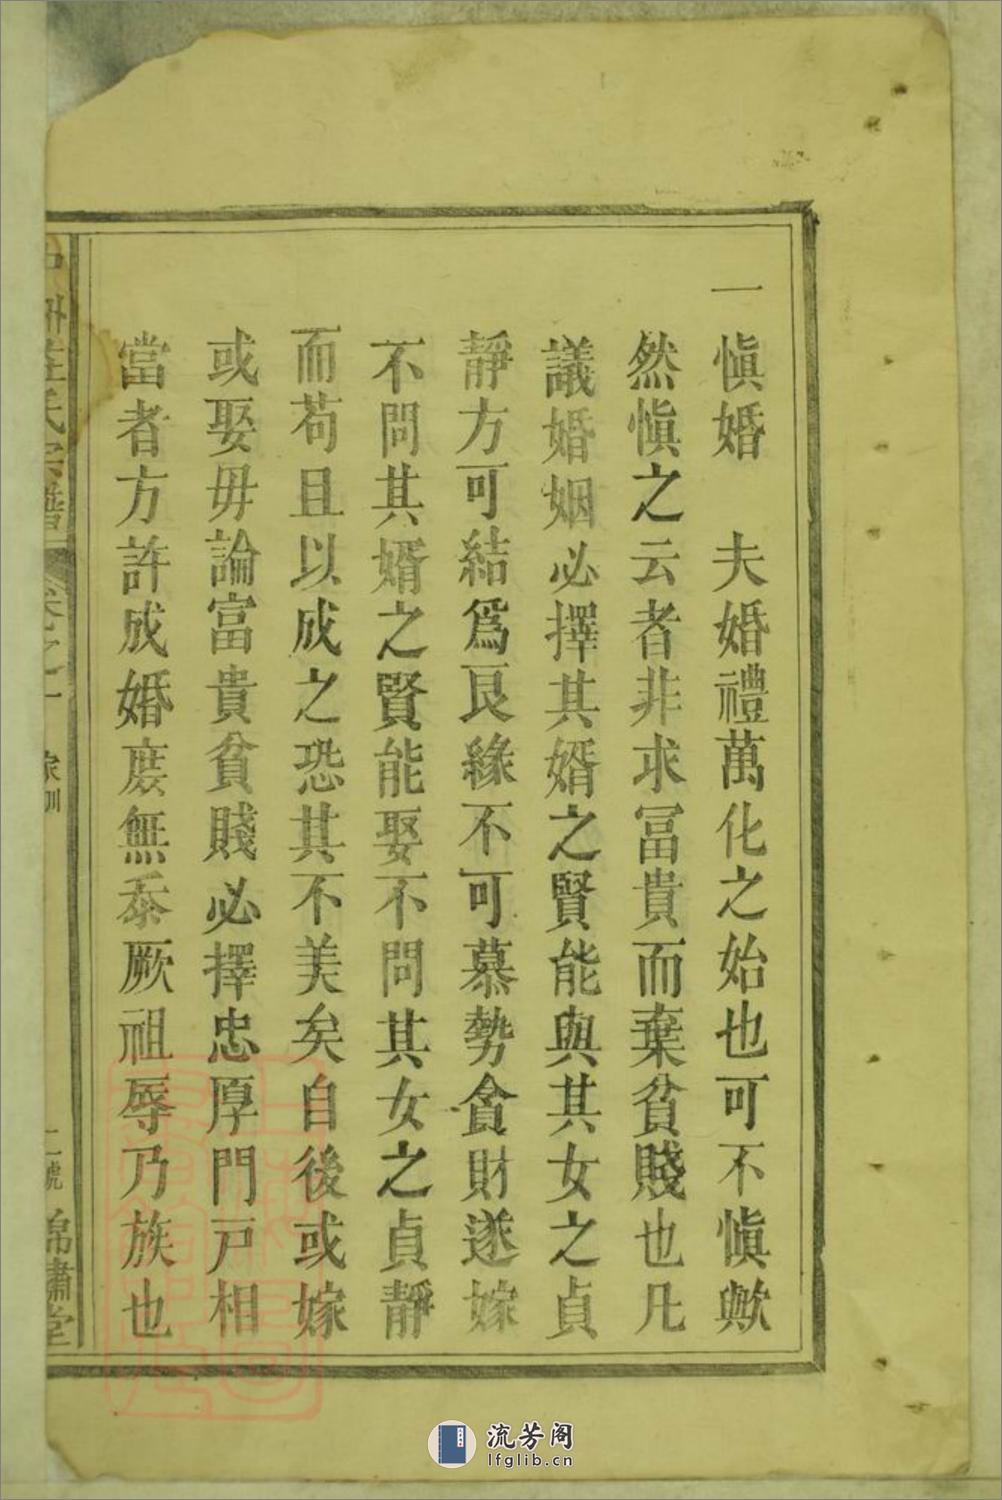 一慎婚　夫婚禮萬化之始也可不慎歟
然慎之云者非求冨貴而棄貧賤也凡
議婚姻必擇其婿之賢能與其女之貞
靜方可結爲良緣不可慕勢貪財遂嫁
不問其婿之賢能娶不問其女之貞靜
而苟且以成之恐其不美矣自後或嫁
或娶毋論富貴貧賤必擇忠厚門戸相
當者方許成婚庻無忝厥祖辱乃族也
州莊氏宗譜
卷之一
家訓
二號
錦繡堂
流芳阁
lfglib.cn